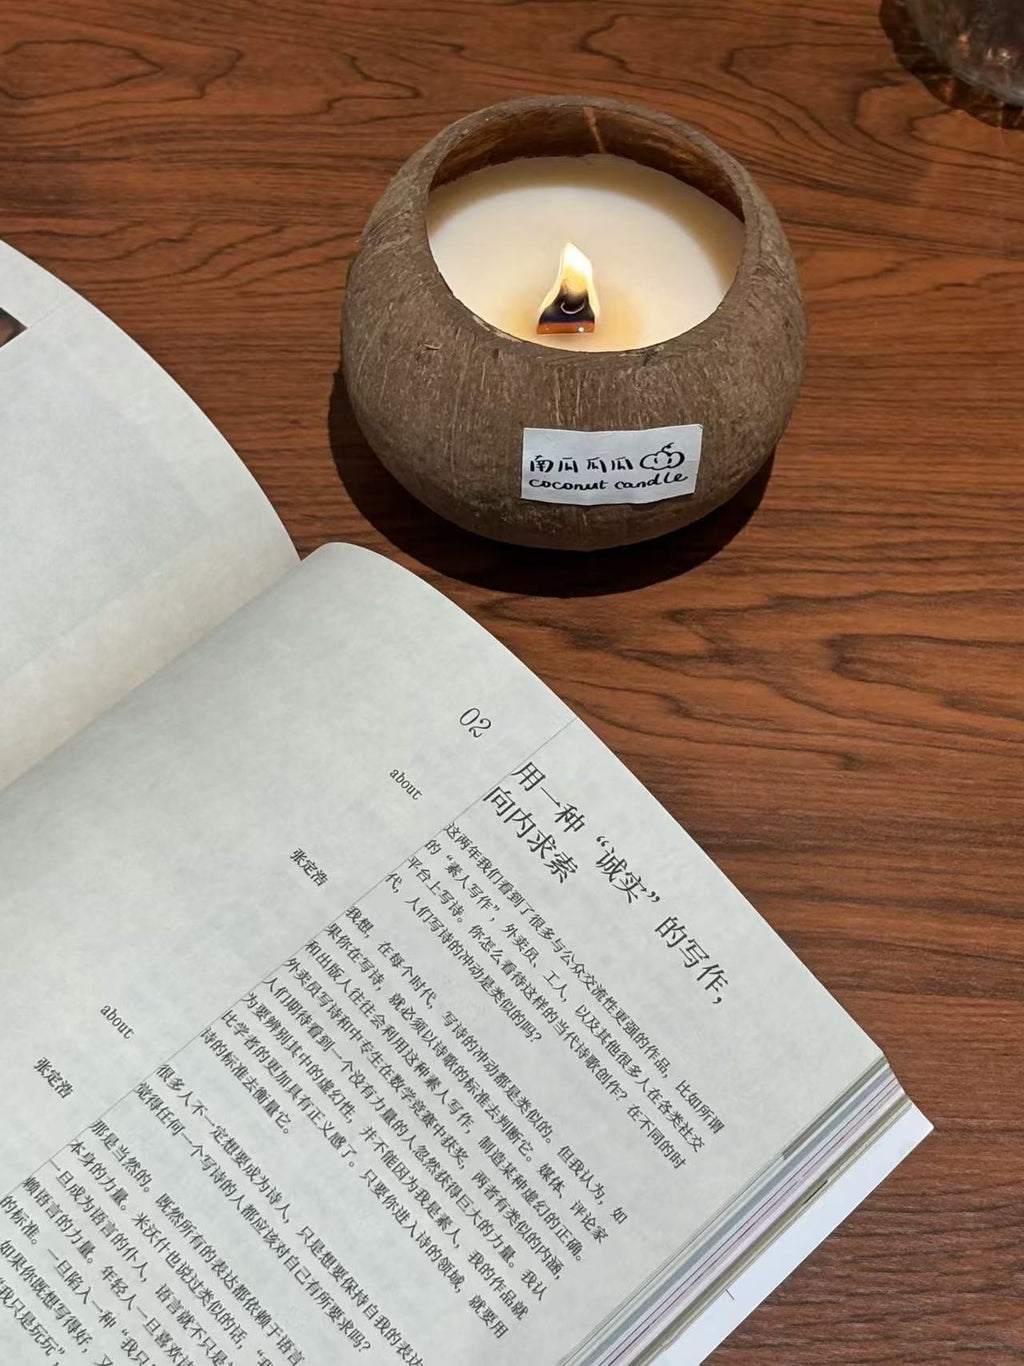 南瓜瓜瓜
coconut candle
02
用一种“诚实”的写作，
向内求索
about
这两年我们看到了很多与公众交流性更强的作品，比如所谓
的“素人写作”，外卖员、工人，以及其他很多人在各类社交
平台上写诗。你怎么看待这样的当代诗歌创作？在不同的时
代，人们写诗的冲动是类似的吗？
张定浩
我想，在每个时代，写诗的冲动都是类似的。但我认为，如
果你在写诗，就必须以诗歌的标准去判断它。媒体、评论家
和出版人往往会利用这种素人写作，制造某种虚幻的正确。
外卖员写诗和中专生在数学竞赛中获奖，两者有类似的内涵，
人们期待看到一个没有力量的人忽然获得巨大的力量。我认
为要辨别其中的虚幻性，并不能因为我是素人，我的作品就
比学者的更加具有正义感了。只要你进入诗的领域，就要用
诗的标准去衡量它。
about
很多人不一定想要成为诗人，只是想要保持自我的表达
觉得任何一个写诗的人都应该对自己有所要求吗？
张定浩
那是当然的。既然所有的表达都依赖于语言
本身的力量。米沃什也说过类似的话，“
一旦成为语言的仆人，语言就不只是
赖语言的力量。年轻人一旦喜欢诗
的标准。一旦陷入一种“我只
如果你既想写得好，又
“我只是玩玩”，